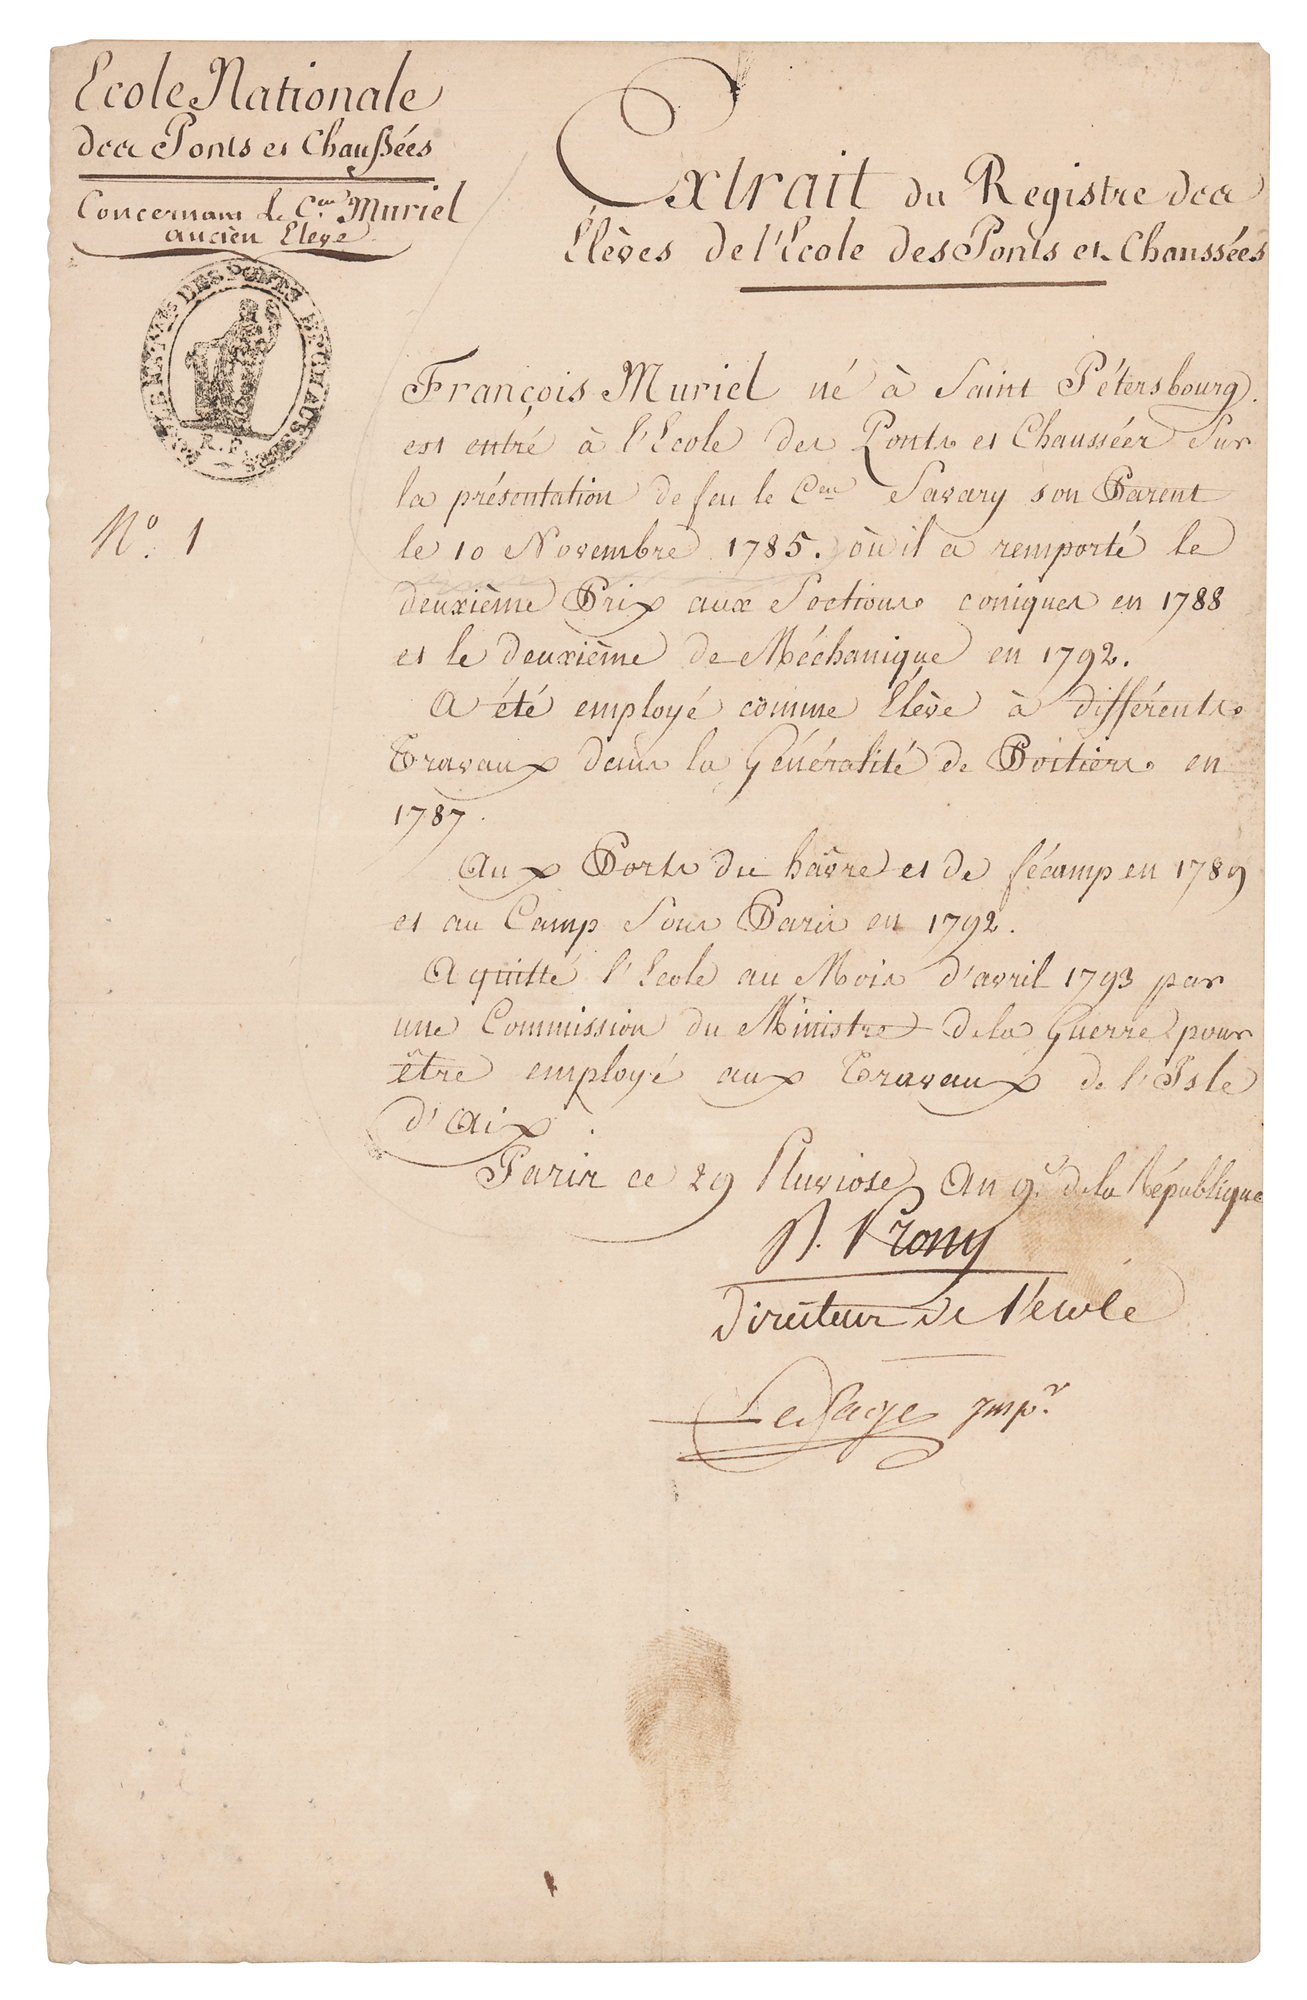 Ecole Nationale
des Ponts et Chaussées
Concernant Le Cen Muriel
ancien Elève
ECOLE NATLE DES PONTS ET CHAUSSÉES
R.F.
No. 1
Extrait du Registre des
Élèves de l'Ecole des Ponts et Chaussées
François Muriel né à Saint Pétersbourg.
est entré à l'Ecole des Ponts et Chaussées Sur
la présentation de feu le Cen Savary son Parent
le 10 Novembre 1785. où il a remporté le
deuxième Prix aux Sections coniques en 1788
et le deuxième de Méchanique en 1792.
A été employé comme Elève à différents
Travaux dans la Généralité de Poitiers en
1787.
Aux Ports du hâvre et de fécamp en 1789
et au Camp Sous Paris en 1792.
A quitté l'Ecole au Mois d'avril 1793 par
une Commission du Ministre de la Guerre pour
être employé aux Travaux de l'Isle
d'Aix.
Paris ce 29 Pluviose An 9e de la République
R. Prony
directeur de l'école
LeSage Inspr